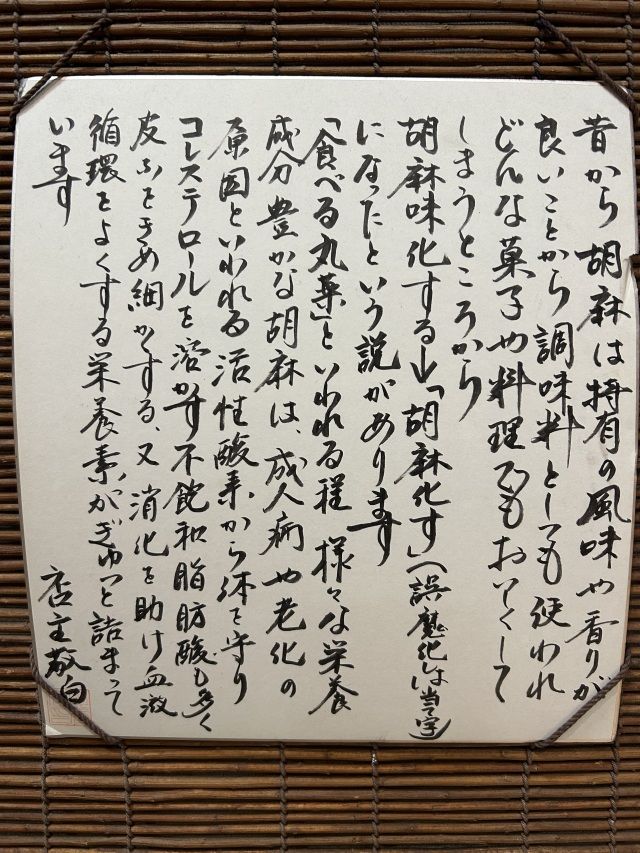 昔から胡麻は特有の風味や香りが
良いことから調味料としても使われ
どんな菓子や料理でもおいしくして
しまうところから
胡麻味化する→「胡麻化す」(誤魔化しは当て字)
になったという説があります
「食べる丸薬」といわれる程 様々な栄養
成分豊かな胡麻は、成人病や老化の
原因といわれる活性酸素から体を守り
コレステロールを溶かす不飽和脂肪酸も多く
皮ふをきめ細かくする、又 消化を助け血液
循環をよくする栄養素がぎゅっと詰まって
います
店主敬白